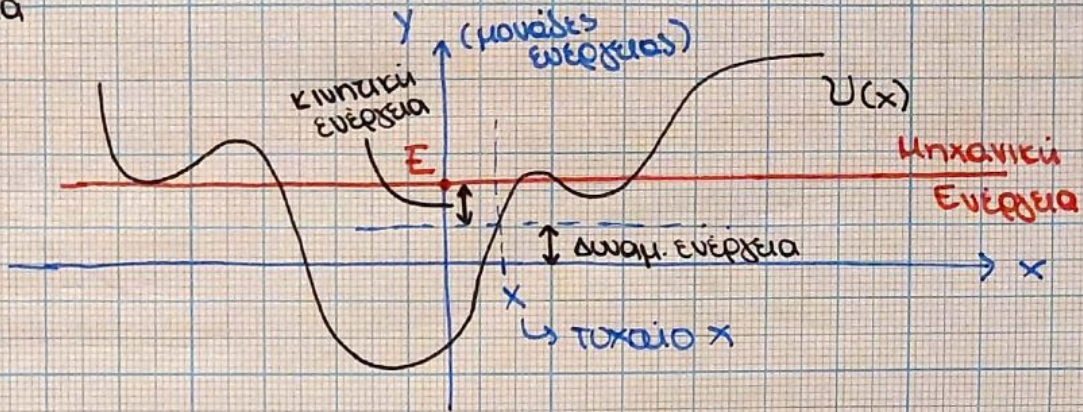 α
Y (μονάδες
ενέργειας)
κινητική
ενέργεια
U(x)
E
Μηχανική
Ενέργεια
Δυναμ. ενέργεια
x
x
↳ τυχαίο x